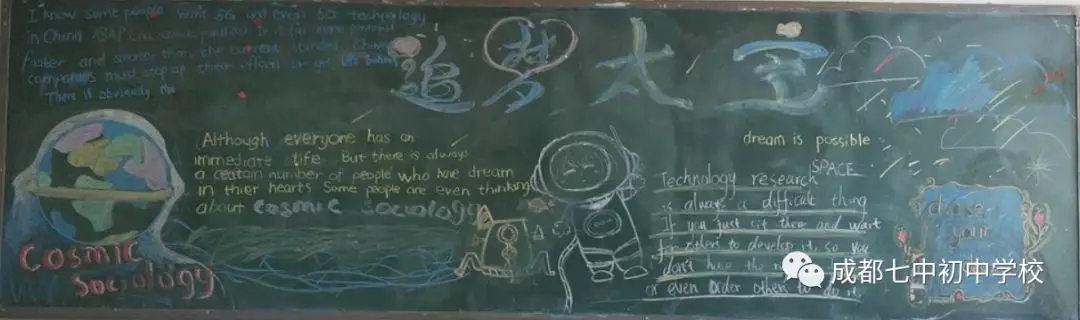 I know some people want
technology
in China ASAP
faster and smarter than the current
China
companies must step up their efforts or get left behind
There is obviously the
追梦太空
Although everyone has an
immediate life. But there is always
a ceatain number of people who have dream
in thier hearts Some people are even thinking
about cosmic sociology
Cosmic
Sociology
dream is possible
SPACE
Technology research
is always a difficult thing
If you just sit there and wait
for others to develop it, so you
don't have the
or even order others to do it.
chase
your
成都七中初中学校